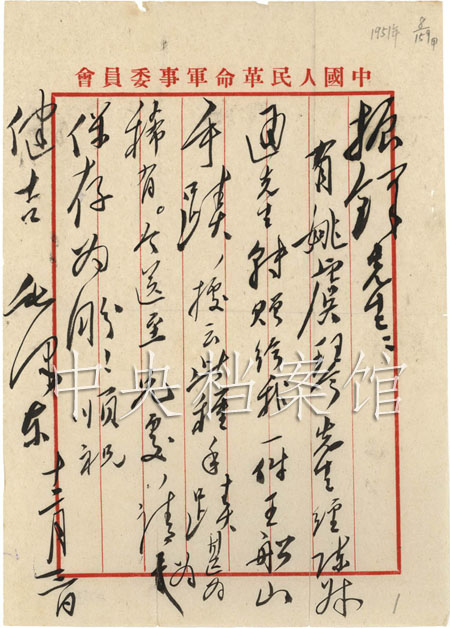 1951年
中國人民革命軍事委員會
振鐸先生：
有姚虞琴先生經陳叔
通先生轉贈給我一件王船山
手蹟，據云此種手蹟甚为
稀有。今送至兄處，請为
保存为盼！順祝
健吉 毛澤東 十二月三日
中央档案馆
1